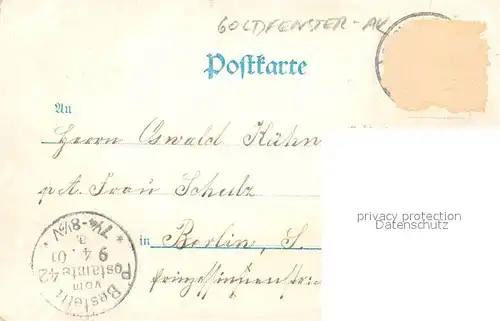 GOLDFENSTER-AK
Postkarte
An
Herrn Oswald Kühn
p. A. Frau Schulz
in Berlin, S.
Prinzessinnenstr
privacy protection
Datenschutz
Bestellt
vom
Postamte 42
9.4.01
7¼-8½V